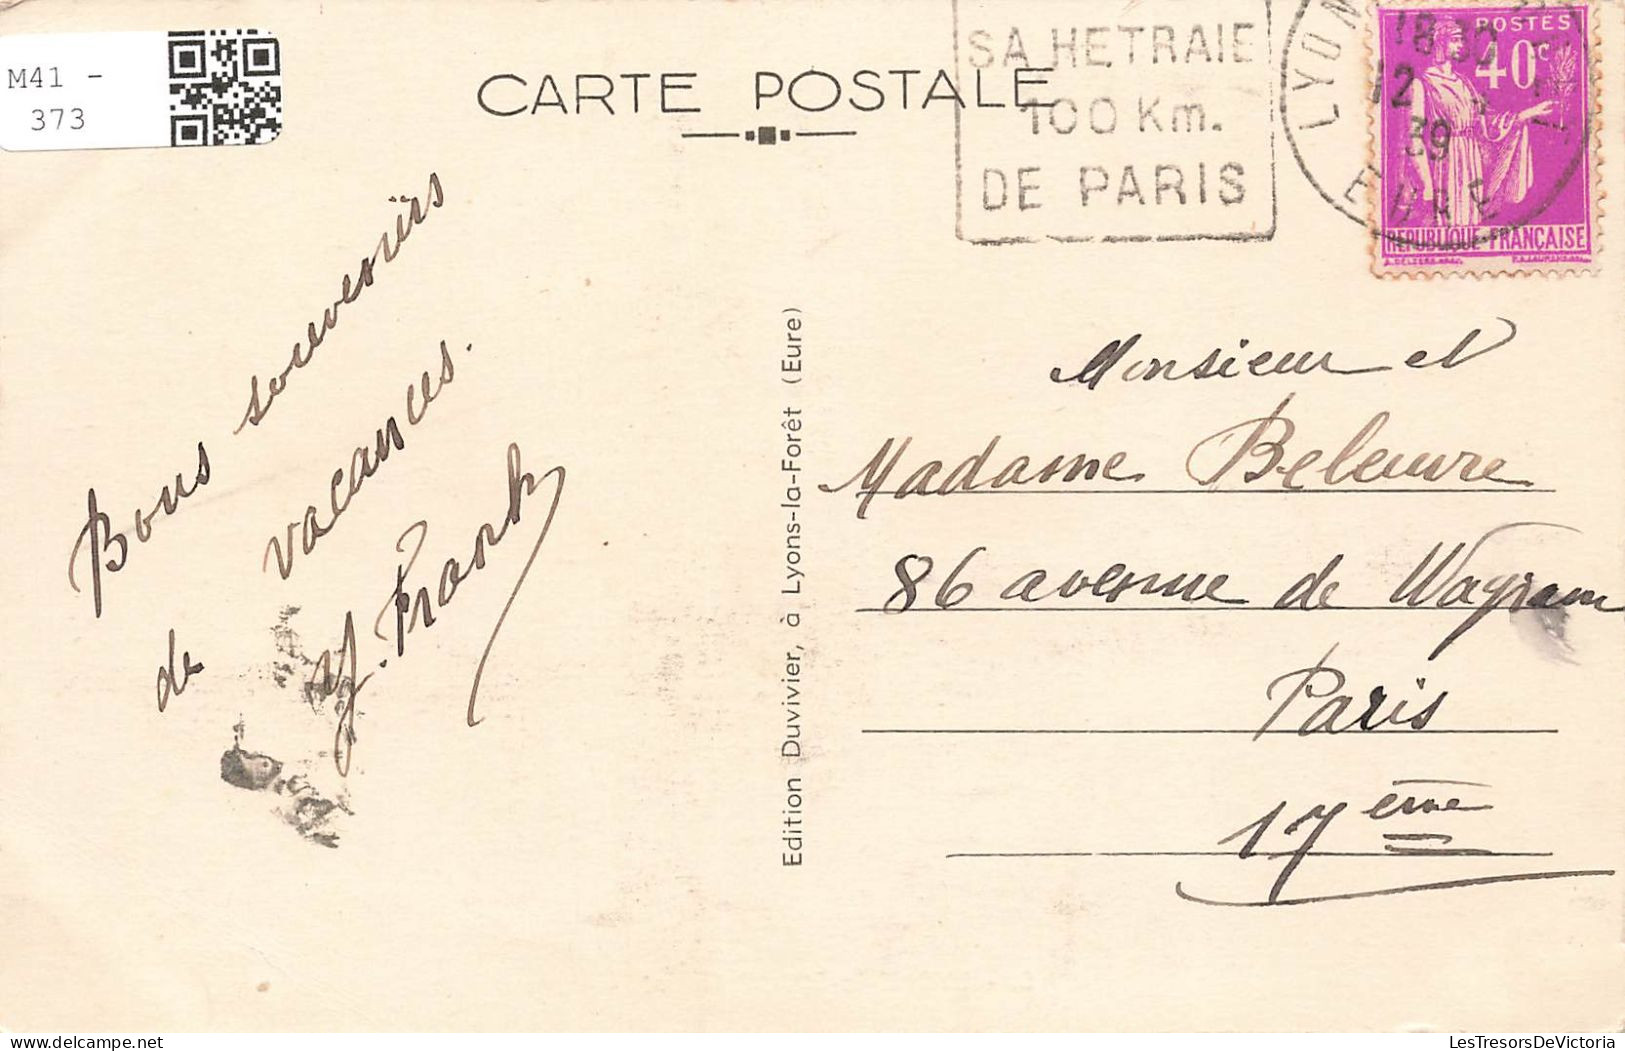 M41 -
373
CARTE POSTALE
SA HETRAIE
100 Km.
DE PARIS
LYON
EURE
18 30
12
39
POSTES
40c
REPUBLIQUE FRANÇAISE
Bons souvenirs
de vacances.
Y. Franck
Edition Duvivier, à Lyons-la-Forêt (Eure)
Monsieur et
Madame Beleuvre
86 avenue de Wagram
Paris
17eme
LesTresorsDeVictoria